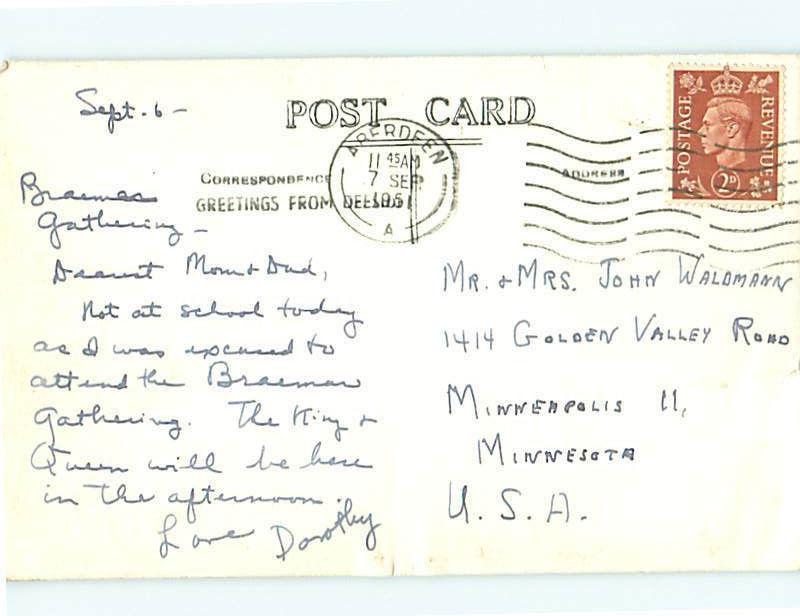 Sept. 6 -
POST CARD
ABERDEEN
11 45 AM
7 SEP
1951
A
POSTAGE
REVENUE
2D
CORRESPONDENCE
ADDRESS
GREETINGS FROM DEESIDE
Braemar
Gathering -
Dearest Mom & Dad,
Not at school today
as I was excused to
attend the Braemar
Gathering. The King &
Queen will be here
in the afternoon.
Love Dorothy
MR. & MRS. JOHN WALDMANN
1414 GOLDEN VALLEY ROAD
MINNEAPOLIS 11,
MINNESOTA
U. S. A.